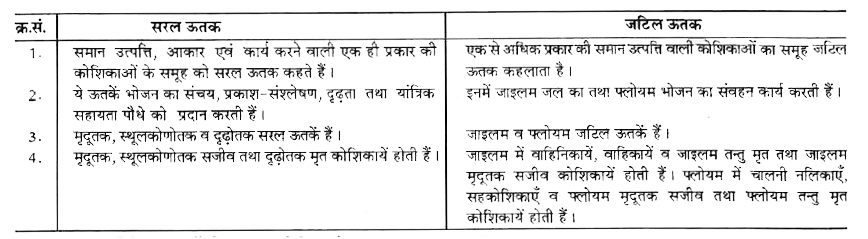 क्र.सं. सरल ऊतक जटिल ऊतक
1. समान उत्पत्ति, आकार एवं कार्य करने वाली एक ही प्रकार की एक से अधिक प्रकार की समान उत्पत्ति वाली कोशिकाओं का समूह जटिल
कोशिकाओं के समूह को सरल ऊतक कहते हैं। ऊतक कहलाता है।
2. ये ऊतकें भोजन का संचय, प्रकाश-संश्लेषण, दृढ़ता तथा यांत्रिक इनमें जाइलम जल का तथा फ्लोयम भोजन का संवहन कार्य करती हैं।
सहायता पौधे को प्रदान करती हैं।
3. मृदूतक, स्थूलकोणोतक व दृढ़ोतक सरल ऊतकें हैं। जाइलम व फ्लोयम जटिल ऊतकें हैं।
4. मृदूतक, स्थूलकोणोतक सजीव तथा दृढ़ोतक मृत कोशिकायें होती हैं। जाइलम में वाहिनिकायें, वाहिकायें व जाइलम तन्तु मृत तथा जाइलम
मृदूतक सजीव कोशिकायें होती हैं। फ्लोयम में चालनी नलिकाएँ,
सहकोशिकाएँ व फ्लोयम मृदूतक सजीव तथा फ्लोयम तन्तु मृत
कोशिकायें होती हैं।